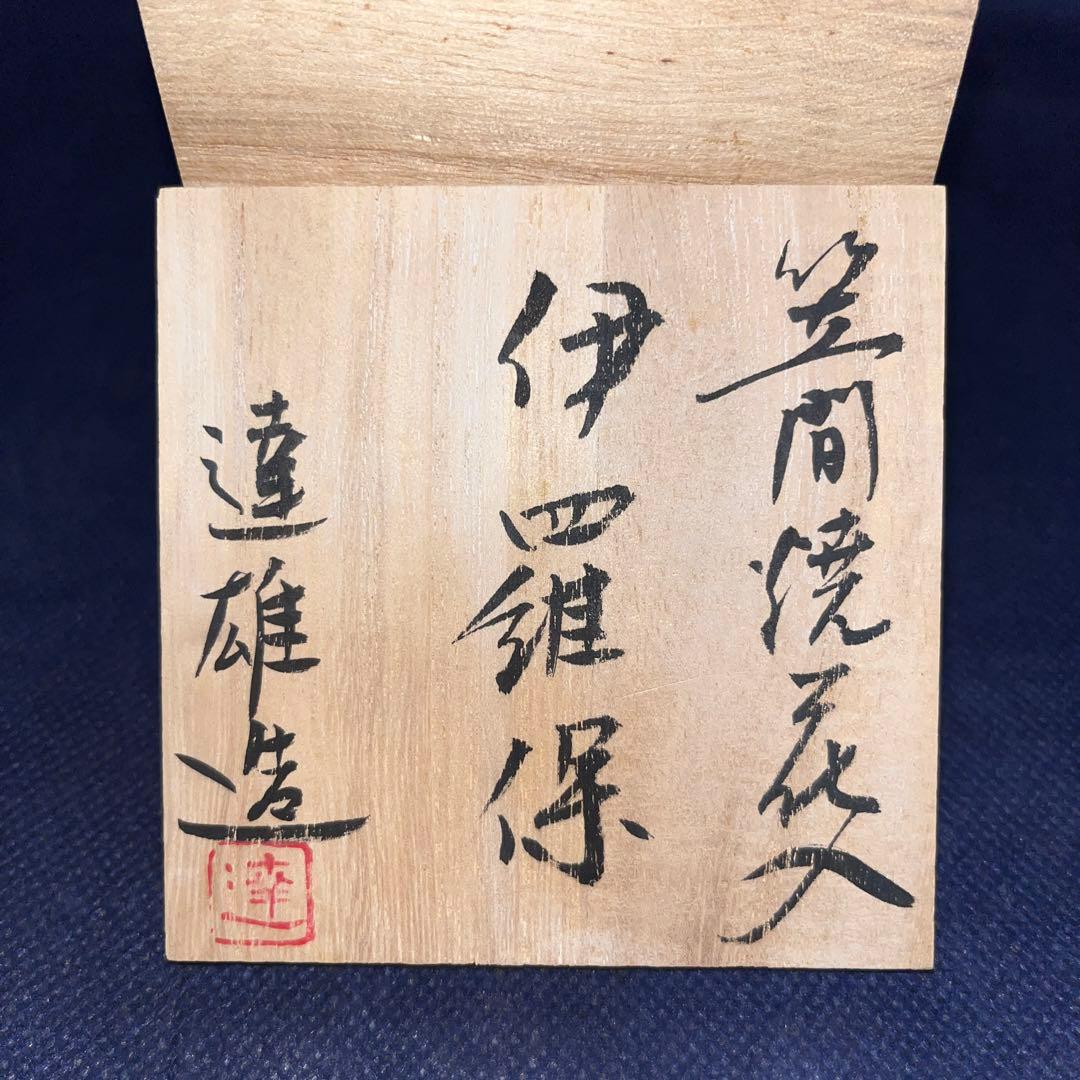 笠間焼花入
伊羅保
達雄造
達